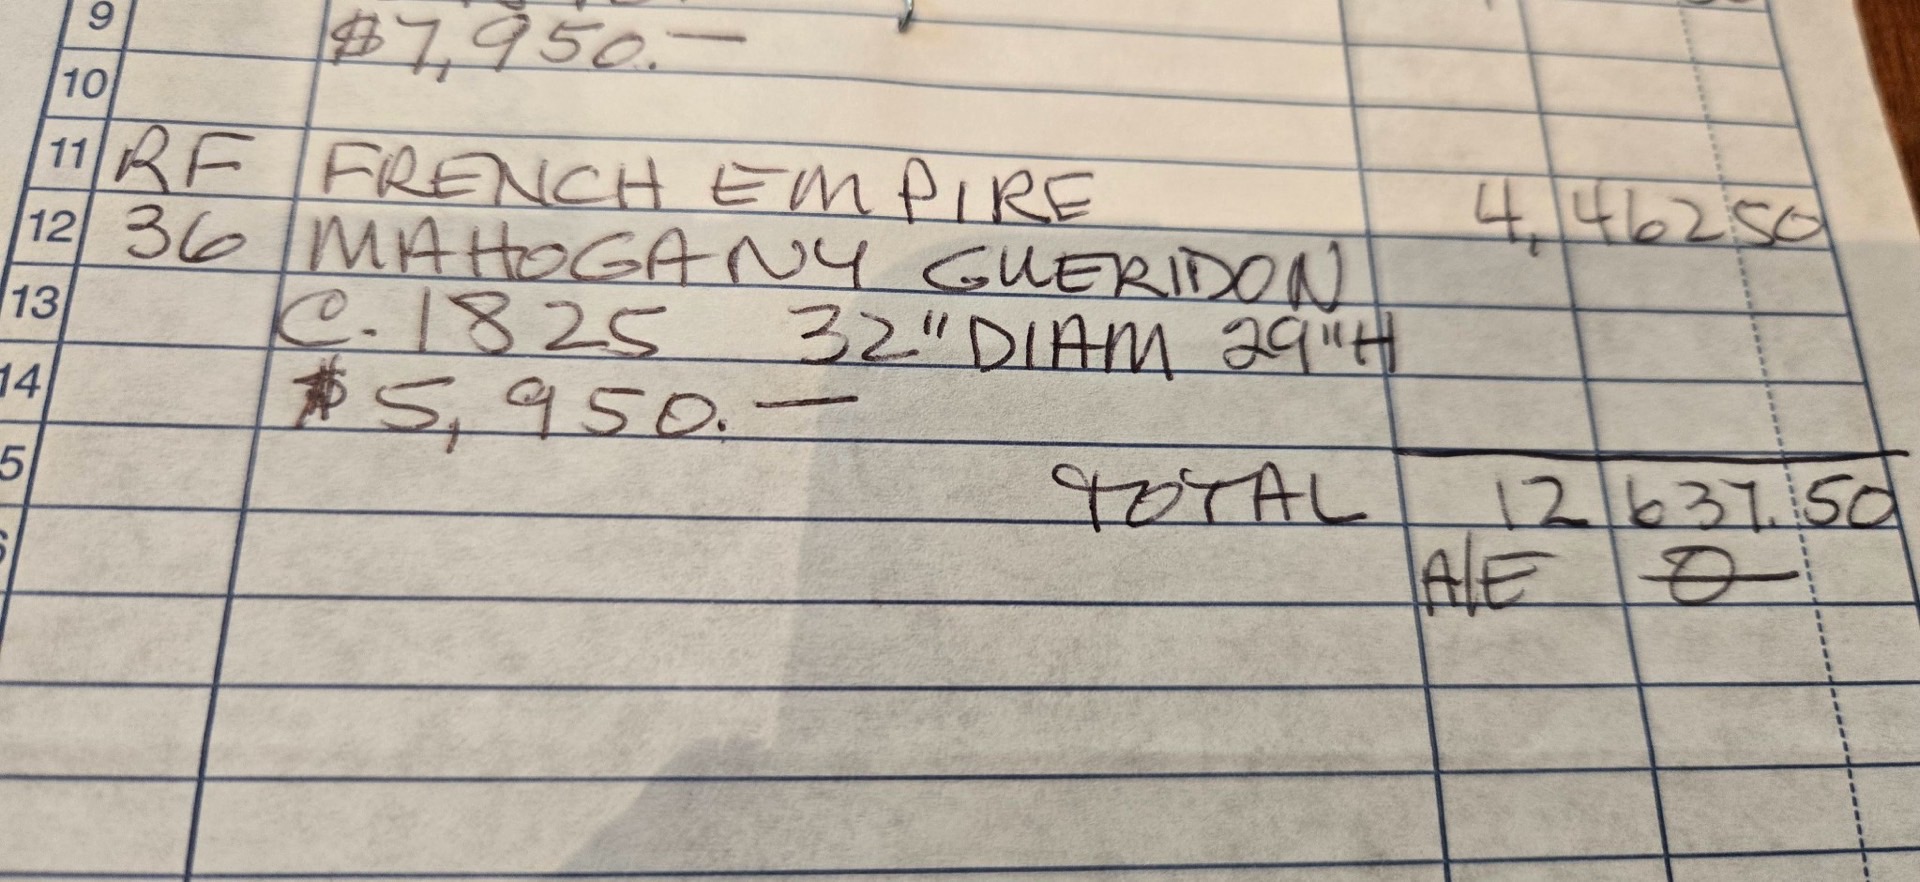 9 $7,950.—
10
11 RF FRENCH EMPIRE 4,46250
12 36 MAHOGANY GUERIDON
13 C. 1825 32" DIAM 29"H
14 $5,950.—
5 TOTAL 12 637.50
A/E 0